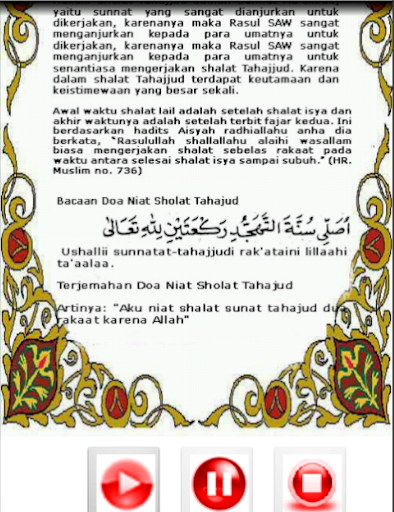 yaitu sunnat yang sangat dianjurkan untuk
dikerjakan, karenanya maka Rasul SAW sangat
menganjurkan kepada para umatnya untuk
dikerjakan, karenanya maka Rasul SAW sangat
menganjurkan kepada para umatnya untuk
senantiasa mengerjakan shalat Tahajjud. Karena
dalam shalat Tahajjud terdapat keutamaan dan
keistimewaan yang besar sekali.
Awal waktu shalat lail adalah setelah shalat isya dan
akhir waktunya adalah setelah terbit fajar kedua. Ini
berdasarkan hadits Aisyah radhiallahu anha dia
berkata, “Rasulullah shallallahu alaihi wasallam
biasa mengerjakan shalat sebelas rakaat pada
waktu antara selesai shalat isya sampai subuh.” (HR.
Muslim no. 736)
Bacaan Doa Niat Sholat Tahajud
اُصَلِّى سُنَّةَ التَّهَجُّدِ رَكْعَتَيْنِ لِلّٰهِ تَعَالٰى
Ushallii sunnatat-tahajjudi rak'ataini lillaahi
ta'aalaa.
Terjemahan Doa Niat Sholat Tahajud
Artinya: "Aku niat shalat sunat tahajud dua
rakaat karena Allah"